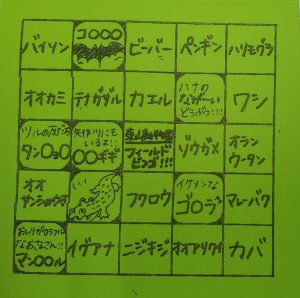 バイソン
コ○○○
ビーバー
ペンギン
ハリモグラ
オオカミ
テナガザル
カエル
ハナの
ながーい
どうぶつ!!!
ワシ
ツルの友だち
タン○ョ○
矢作川にも
いるよ!!
○○ギギ
東山動物園
フィールド
ビンゴ!!!
ゾウガメ
オラン
ウータン
オオ
サンショウウオ
フクロウ
イケメンな
ゴ○ラ
マレーバク
おしりがカラフル
なおさるさん!!
マン○○ル
イグアナ
ニジキジ
オオアリクイ
カバ